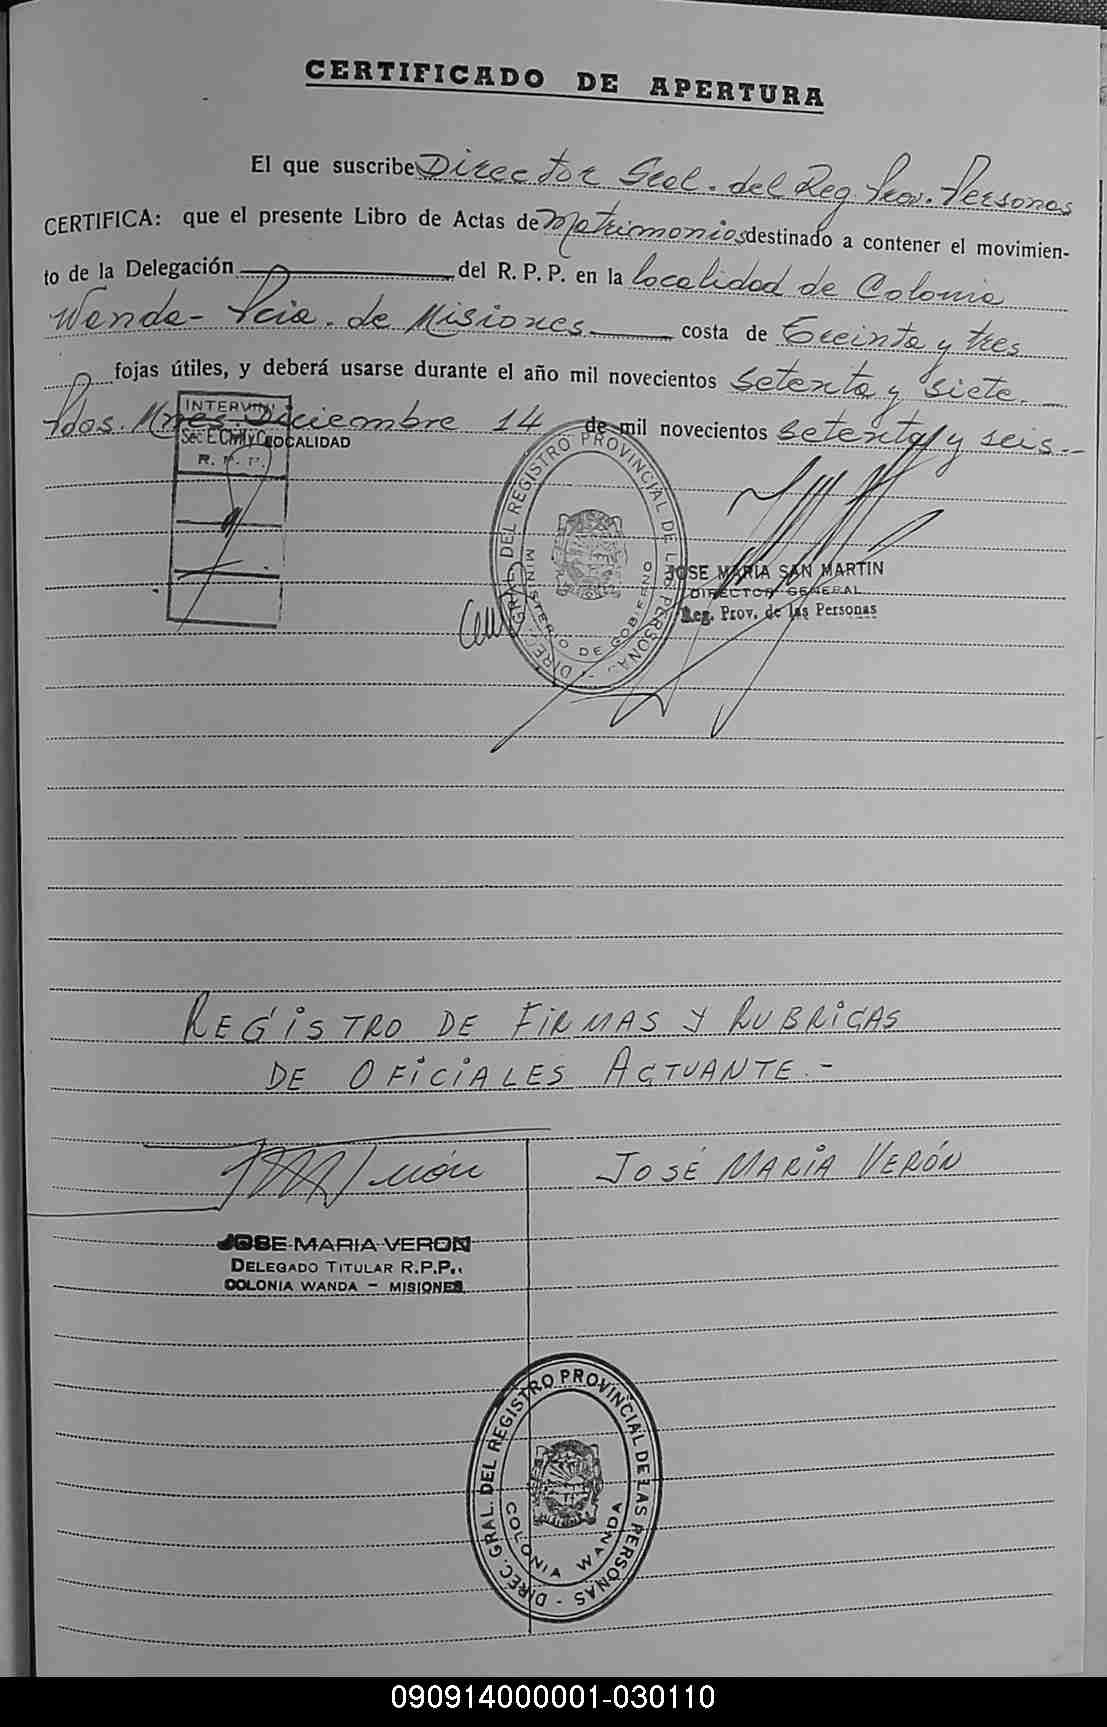 CERTIFICADO DE APERTURA
El que suscribe Director Gral. del Reg Prov. Personas
CERTIFICA: que el presente Libro de Actas de Matrimonios destinado a contener el movimien-
to de la Delegación del R. P. P. en la localidad de Colonia
Wanda - Pcia. de Misiones costa de treinta y tres
fojas útiles, y deberá usarse durante el año mil novecientos setenta y siete. -
Pdas. Mnes Diciembre 14 de mil novecientos setenta y seis.-
INTERVINO
Sec E. Civil y C
LOCALIDAD
R. P. P.
DIREC. GRAL. DEL REGISTRO PROVINCIAL DE LAS PERSONAS -
MINISTERIO DE GOBIERNO
JOSE MARIA SAN MARTIN
DIRECTOR GENERAL
Reg. Prov. de las Personas
REGISTRO DE FIRMAS Y RUBRICAS
DE OFICIALES ACTUANTE.-
JOSÉ MARIA VERÓN
JOSE MARIA VERON
DELEGADO TITULAR R.P.P.
COLONIA WANDA - MISIONES
DIREC. GRAL. DEL REGISTRO PROVINCIAL DE LAS PERSONAS -
COLONIA WANDA
090914000001-030110